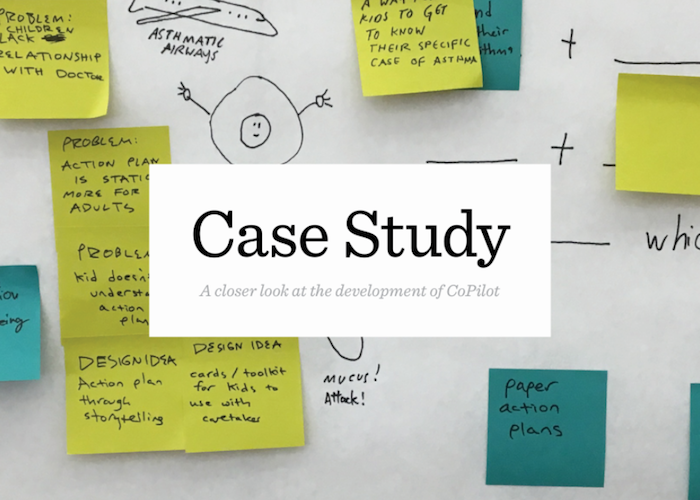 PROBLEM:
CHILDREN
LACK
RELATIONSHIP
WITH DOCTOR
ASTHMATIC
AIRWAYS
KIDS TO GET
TO KNOW
THEIR SPECIFIC
CASE OF ASTHMA
their
+
+
PROBLEM:
ACTION PLAN
IS STATIC
MORE FOR
ADULTS
PROBLEM
kid doesn't
underst
action
plan
Case Study
A closer look at the development of CoPilot
DESIGN IDEA
Action plan
through
storytelling
DESIGN IDEA
cards / toolkit
for kids to
use with
caretaker
MUCUS!
Attack!
paper
action
plans